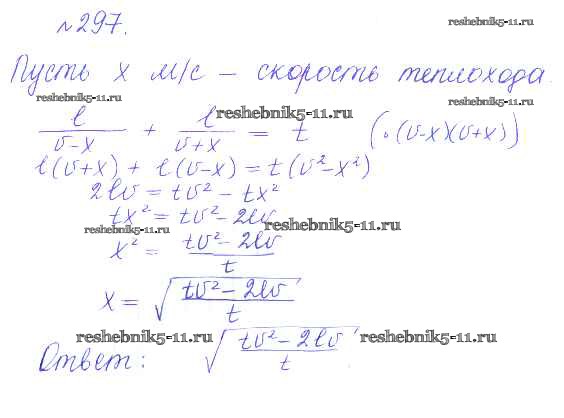 №297.
reshebnik5-11.ru
Пусть x м/с – скорость теплохода.
reshebnik5-11.ru reshebnik5-11.ru reshebnik5-11.ru
l/(v-x) + l/(v+x) = t (·(v-x)(v+x))
l(v+x) + l(v-x) = t(v²-x²)
2lv = tv² - tx²
tx² = tv² - 2lv
reshebnik5-11.ru reshebnik5-11.ru
x² = (tv² - 2lv)/t
x = √((tv² - 2lv)/t)
reshebnik5-11.ru reshebnik5-11.ru
Ответ: √((tv² - 2lv)/t)